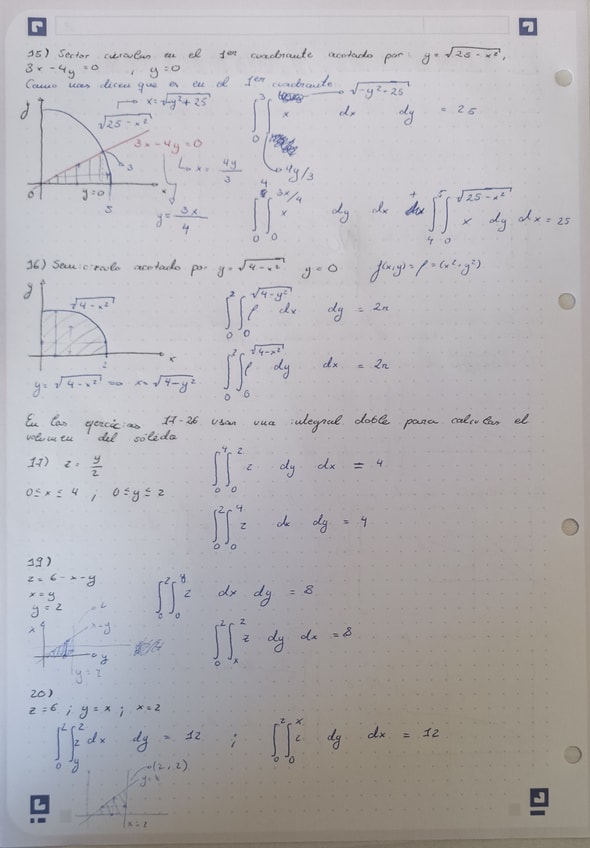 15) Sector circular en el 1er cuadrante acotado por: y = √(25 - x²),
3x - 4y = 0 ; y = 0
Como nos dicen que es en el 1er cuadrante
y
x = √(y² + 25)
√(25 - x²)
3x - 4y = 0
x = 4y/3
y = 0
y = 3x/4
0
3
5
x
∫₀³ ∫_{4y/3}^{√(-y² + 25)} x dx dy = 25
∫₀⁴ ∫₀^{3x/4} x dy dx + ∫₄⁵ ∫₀^{√(25 - x²)} x dy dx = 25
16) Semicírculo acotado por y = √(4 - x²) y = 0 f(x,y) = f = (x² + y²)
y
√(4 - x²)
2
x
y = √(4 - x²) => x = √(4 - y²)
∫₀² ∫₀^{√(4 - y²)} f dx dy = 2π
∫₀² ∫₀^{√(4 - x²)} f dy dx = 2π
En los ejercicios 17-26 usar una integral doble para calcular el
volumen del sólido
17) z = y/2
0 ≤ x ≤ 4 ; 0 ≤ y ≤ 2
∫₀⁴ ∫₀² z dy dx = 4
∫₀² ∫₀⁴ z dx dy = 4
19)
z = 6 - x - y
x = y
y = 2
∫₀² ∫₀^y z dx dy = 8
∫₀² ∫ₓ² z dy dx = 8
x
x = y
y
y = 2
20)
z = 6 ; y = x ; x = 2
∫₀² ∫_y² z dx dy = 12 ; ∫₀² ∫₀^x z dy dx = 12
(2, 2)
y = x
x = 2